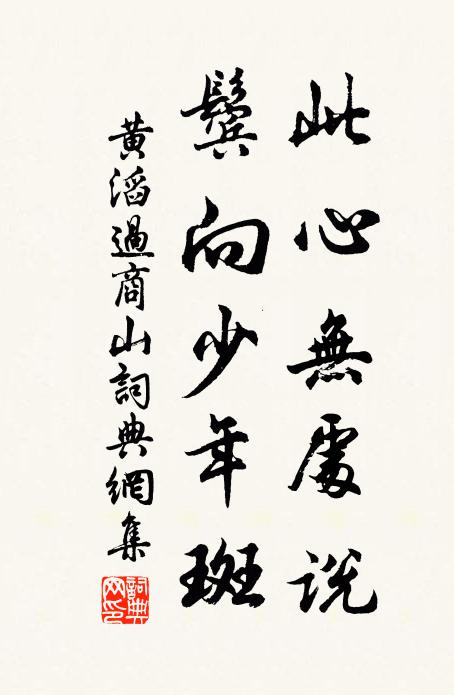 此心無處說
鬢向少年斑
黃滔過商山詞典網集
詞典網印